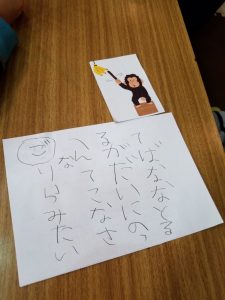 ご
りらみたい
な
へんてこなさ
るがだいにのっ
てばななとる